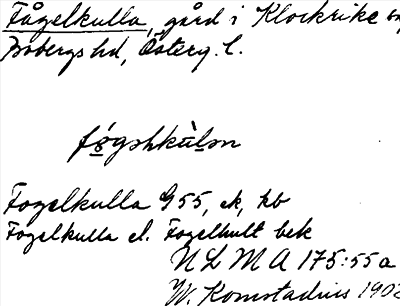 Fågelkulla, gård i Klockrike sn,
Bobergs hd, Österg. l.
Fogelkulla G55, ek, hb
Fogelkulla el. Fogelhult bek
NLMA 175:55a
W. Komstadius 1902